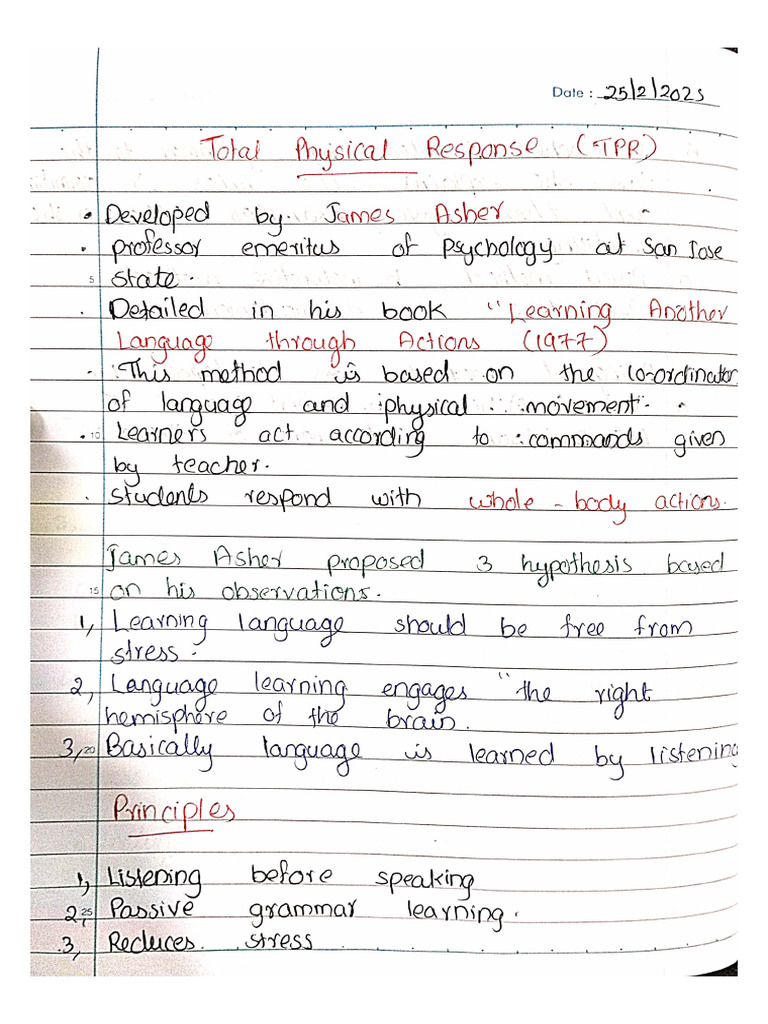 Date : 25/2/2025
Total Physical Response (TPR)
• Developed by James Asher
• professor emeritus of Psychology at San Jose
5 state.
• Detailed in his book "Learning Another
Language through Actions (1977)
• This method is based on the co-ordination
of language and physical movement.
• 10 Learners act according to commands given
by teacher.
• students respond with whole-body actions.
James Asher proposed 3 hypothesis based
15 on his observations.
1, Learning language should be free from
stress.
2, Language learning engages "the right
hemisphere of the brain.
3, 20 Basically language is learned by listening
Principles
1, Listening before speaking
2, 25 Passive grammar learning.
3, Reduces stress